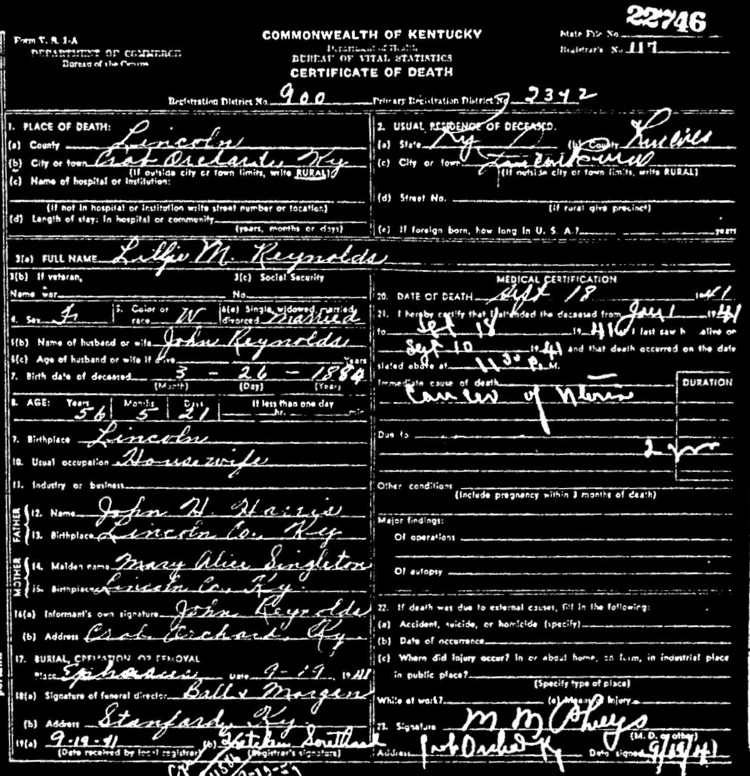 22746
Form V. S. 1-A
DEPARTMENT OF COMMERCE
Bureau of the Census
COMMONWEALTH OF KENTUCKY
Department of Health
BUREAU OF VITAL STATISTICS
CERTIFICATE OF DEATH
State File No.
Registrar's No. 117
Registration District No. 900 Primary Registration District No. 2342
1. PLACE OF DEATH:
(a) County Lincoln
(b) City or town Crab Orchard, Ky
(If outside city or town limits, write RURAL)
(c) Name of hospital or institution:
(If not in hospital or institution write street number or location)
(d) Length of stay: In hospital or community
(years, months or days)
2. USUAL RESIDENCE OF DECEASED:
(a) State Ky (b) County
(c) City or town
(If outside city or town limits, write RURAL)
(d) Street No.
(If rural give precinct)
(e) If foreign born, how long in U. S. A.? years
3(a) FULL NAME Lillie M. Reynolds
3(b) If veteran,
Name war
3(c) Social Security
No.
4. Sex F 5. Color or race W 6(a) Single, widowed, married, divorced Married
6(b) Name of husband or wife John Reynolds
6(c) Age of husband or wife if alive Years
7. Birth date of deceased 3 - 26 - 1884
(Month) (Day) (Years)
8. AGE: Years Months Days If less than one day
56 5 21 hr. min.
9. Birthplace Lincoln
10. Usual occupation Housewife
11. Industry or business
FATHER
12. Name John H. Harris
13. Birthplace Lincoln Co., Ky
MOTHER
14. Maiden name Mary Alice Singleton
15. Birthplace Lincoln Co., Ky.
16(a) Informant's own signature John Reynolds
(b) Address Crab Orchard, Ky.
17. BURIAL, CREMATION OR REMOVAL
Place Date 9-19 1941
18(a) Signature of funeral director Ball & Morgan
(b) Address Stanford, Ky.
19(a) 9-19-41 (b)
(Date received by local registrar) (Registrar's signature)
MEDICAL CERTIFICATION
20. DATE OF DEATH Sept 18 1941
21. I hereby certify that I attended the deceased from Jan 1 1941
to Sept 18 1941 I last saw h alive on
Sept 10 1941 and that death occurred on the date
stated above at P. M.
Immediate cause of death
DURATION
Cancer of Uterus
Due to
2 yrs
Other conditions
(Include pregnancy within 3 months of death)
Major findings:
Of operations
Of autopsy
22. If death was due to external causes, fill in the following:
(a) Accident, suicide, or homicide (specify)
(b) Date of occurrence
(c) Where did injury occur? In or about home, on farm, in industrial place
in public place?
(Specify type of place)
While at work? (e) Means of Injury
23. Signature M M
(M. D. or other)
Address Crab Orchard Ky Date signed 9/19/41